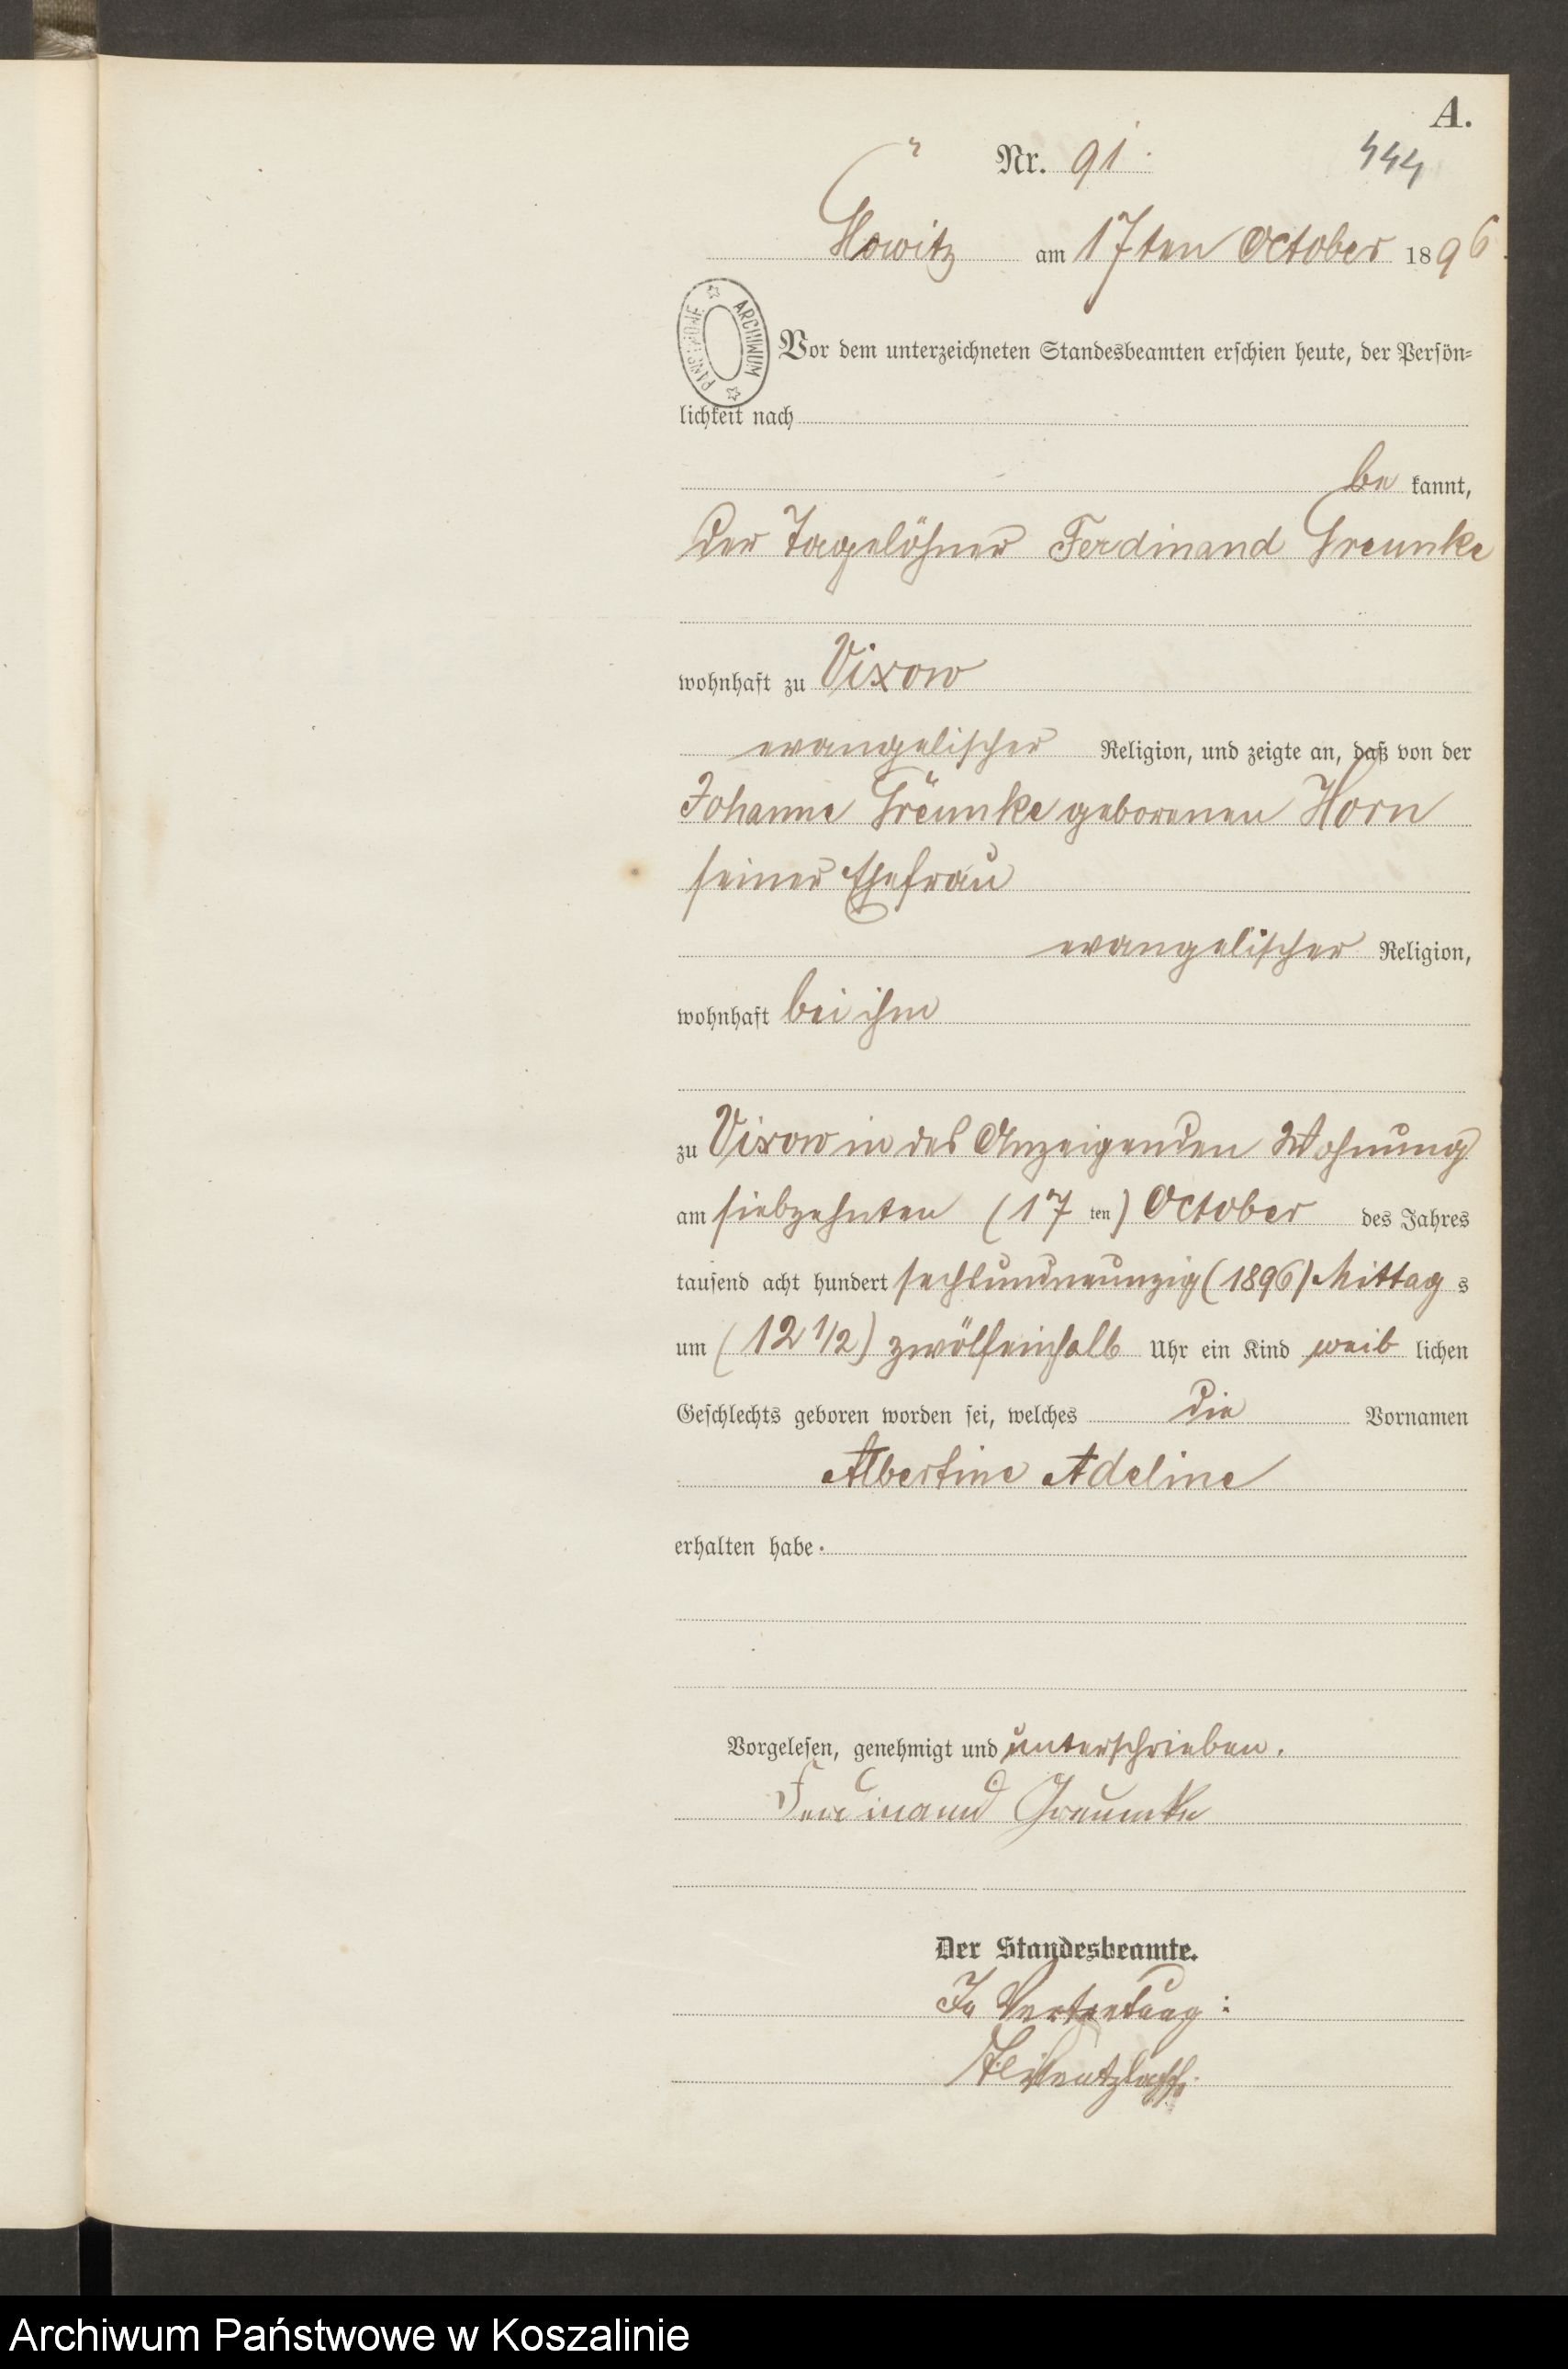 A.
Nr. 91.
444
Glowitz am 17ten October 1896.
ARCHIWUM PAŃSTWOWE
Vor dem unterzeichneten Standesbeamten erschien heute, der Persön-
lichkeit nach
be kannt,
der Tagelöhner Ferdinand Greunke
wohnhaft zu Vixow
evangelischer Religion, und zeigte an, daß von der
Johanne Greunke geborenen Horn
seiner Ehefrau
evangelischer Religion,
wohnhaft bei ihm
zu Vixow in des Anzeigenden Wohnung
am siebzehnten (17 ten) October des Jahres
tausend acht hundert sechsundneunzig (1896) Mittag s
um (12 1/2) zwölfeinhalb Uhr ein Kind weib lichen
Geschlechts geboren worden sei, welches die Vornamen
Albertine Adeline
erhalten habe.
Vorgelesen, genehmigt und unterschrieben.
Ferdinand Greunke
Der Standesbeamte.
In Vertretung:
Archiwum Państwowe w Koszalinie